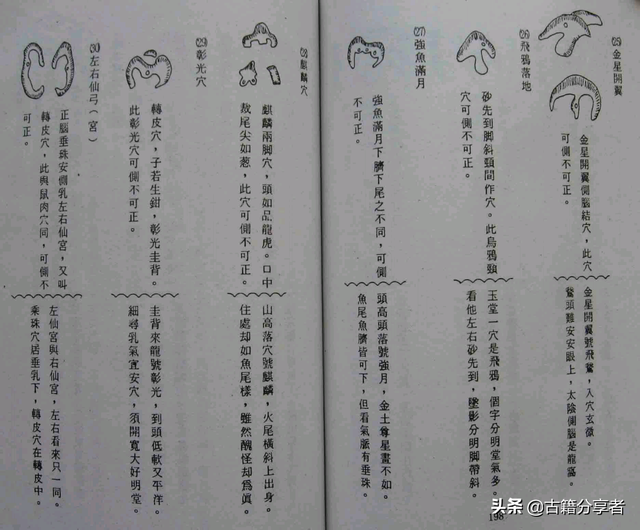 ㉕ 金星開翼
金星開翼側腦結穴,此穴
可側不可正。
金星開翼號飛鵞,入穴玄微。
鵞頭難安安眼上,太陰側腦是龍窩。
㉖ 飛鴉落地
砂先到脚斜頸間作穴。此烏鴉頸
穴可側不可正。
玉堂一穴是飛鴉,個字分明堂氣多。
看他左右砂先到,墜影分明脚帶斜。
㉗ 強魚滿月
強魚滿月下臍下尾之不同,可側
不可正。
頭高頭落號強月,金土尊星晝不如。
魚尾魚臍皆可下,但看氣脈有垂珠。
198
㉘ 麒麟穴
麒麟兩脚穴,頭如品龍虎。口中
裁尾尖如葱,此穴可側不可正。
山高落穴號麒麟,火尾橫斜上出身。
住處却如魚尾樣,雖然醜怪却為眞。
㉙ 彰光穴
轉皮穴,子若生鉗,彰光圭背。
此彰光穴可側不可正。
圭背來龍號彰光,到頭低軟又平洋。
細尋乳氣宜安穴,須開寬大好明堂。
㉚ 左右仙弓(宮)
正腦垂珠安側乳左右仙宮,又叫
轉皮穴,此與鼠肉穴同,可側不
可正。
左仙宮與右仙宮,左右看來只一同。
乘珠穴居垂乳下,轉皮穴在轉皮中。
头条 @古籍分享者